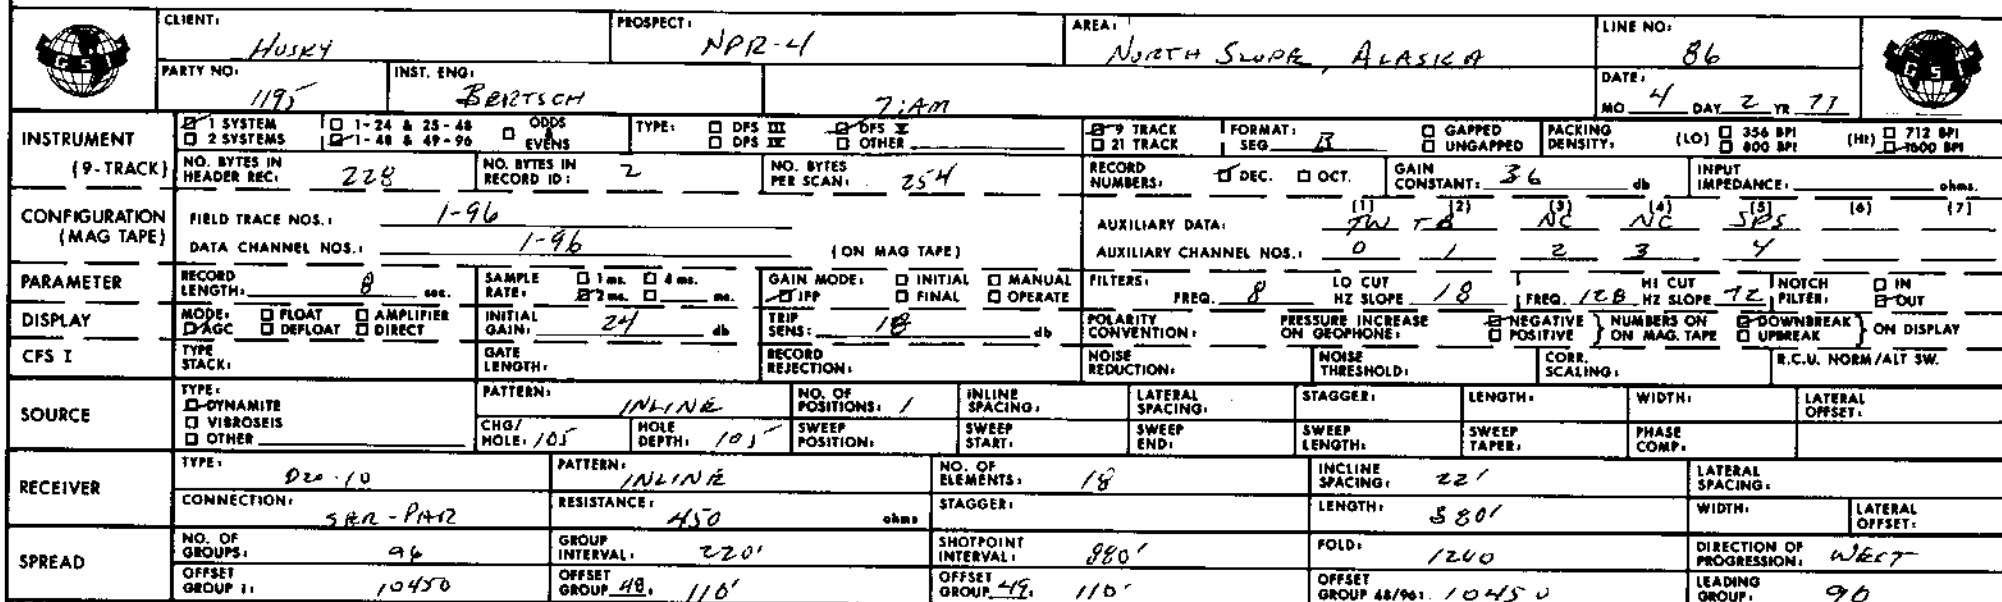 CLIENT: HUSKY PROSPECT: NPR-4 AREA: NORTH SLOPE, ALASKA LINE NO: 86
GSI GSI
PARTY NO: 1195 INST. ENG: BERTSCH 7:AM DATE: MO 4 DAY 2 YR 77
INSTRUMENT 1 SYSTEM 1-24 & 25-48 ODDS & EVENS TYPE: DFS III DFS V 9 TRACK FORMAT: GAPPED PACKING DENSITY: (LO) 356 BPI (HI) 712 BPI
2 SYSTEMS 1-48 & 49-96 DFS IV OTHER 21 TRACK SEG B UNGAPPED 800 BPI 1600 BPI
(9-TRACK) NO. BYTES IN HEADER REC: 228 NO. BYTES IN RECORD ID: 2 NO. BYTES PER SCAN: 254 RECORD NUMBERS: DEC. OCT. GAIN CONSTANT: 36 db INPUT IMPEDANCE: ohms.
CONFIGURATION (MAG TAPE) FIELD TRACE NOS.: 1-96 AUXILIARY DATA: (1) TW (2) TB (3) NC (4) NC (5) SPS (6) (7)
DATA CHANNEL NOS.: 1-96 (ON MAG TAPE) AUXILIARY CHANNEL NOS.: 0 1 2 3 4
PARAMETER RECORD LENGTH: 8 sec. SAMPLE RATE: 1 ms. 4 ms. 2 ms. ms. GAIN MODE: INITIAL MANUAL IFP FINAL OPERATE FILTERS: LO CUT FREQ. 8 HZ SLOPE 18 HI CUT FREQ. 128 HZ SLOPE 72 NOTCH FILTER: IN OUT
DISPLAY MODE: FLOAT AMPLIFIER AGC DEFLOAT DIRECT INITIAL GAIN: 24 db TRIP SENS: 18 db POLARITY CONVENTION: PRESSURE INCREASE ON GEOPHONE: NEGATIVE POSITIVE } NUMBERS ON MAG. TAPE DOWNBREAK UPBREAK } ON DISPLAY
CFS I TYPE STACK: GATE LENGTH: RECORD REJECTION: NOISE REDUCTION: NOISE THRESHOLD: CORR. SCALING: R.C.U. NORM/ALT SW.
SOURCE TYPE: DYNAMITE VIBROSEIS OTHER PATTERN: INLINE NO. OF POSITIONS: 1 INLINE SPACING: LATERAL SPACING: STAGGER: LENGTH: WIDTH: LATERAL OFFSET:
CHG/HOLE: 105 HOLE DEPTH: 105 SWEEP POSITION: SWEEP START: SWEEP END: SWEEP LENGTH: SWEEP TAPER: PHASE COMP:
RECEIVER TYPE: D20-10 PATTERN: INLINE NO. OF ELEMENTS: 18 INCLINE SPACING: 22' LATERAL SPACING:
CONNECTION: SER-PAR RESISTANCE: 450 ohms STAGGER: LENGTH: 380' WIDTH: LATERAL OFFSET:
SPREAD NO. OF GROUPS: 96 GROUP INTERVAL: 220' SHOTPOINT INTERVAL: 880' FOLD: 1200 DIRECTION OF PROGRESSION: WEST
OFFSET GROUP 1: 10450 OFFSET GROUP 48: 110' OFFSET GROUP 49: 110' OFFSET GROUP 48/96: 10450 LEADING GROUP: 96